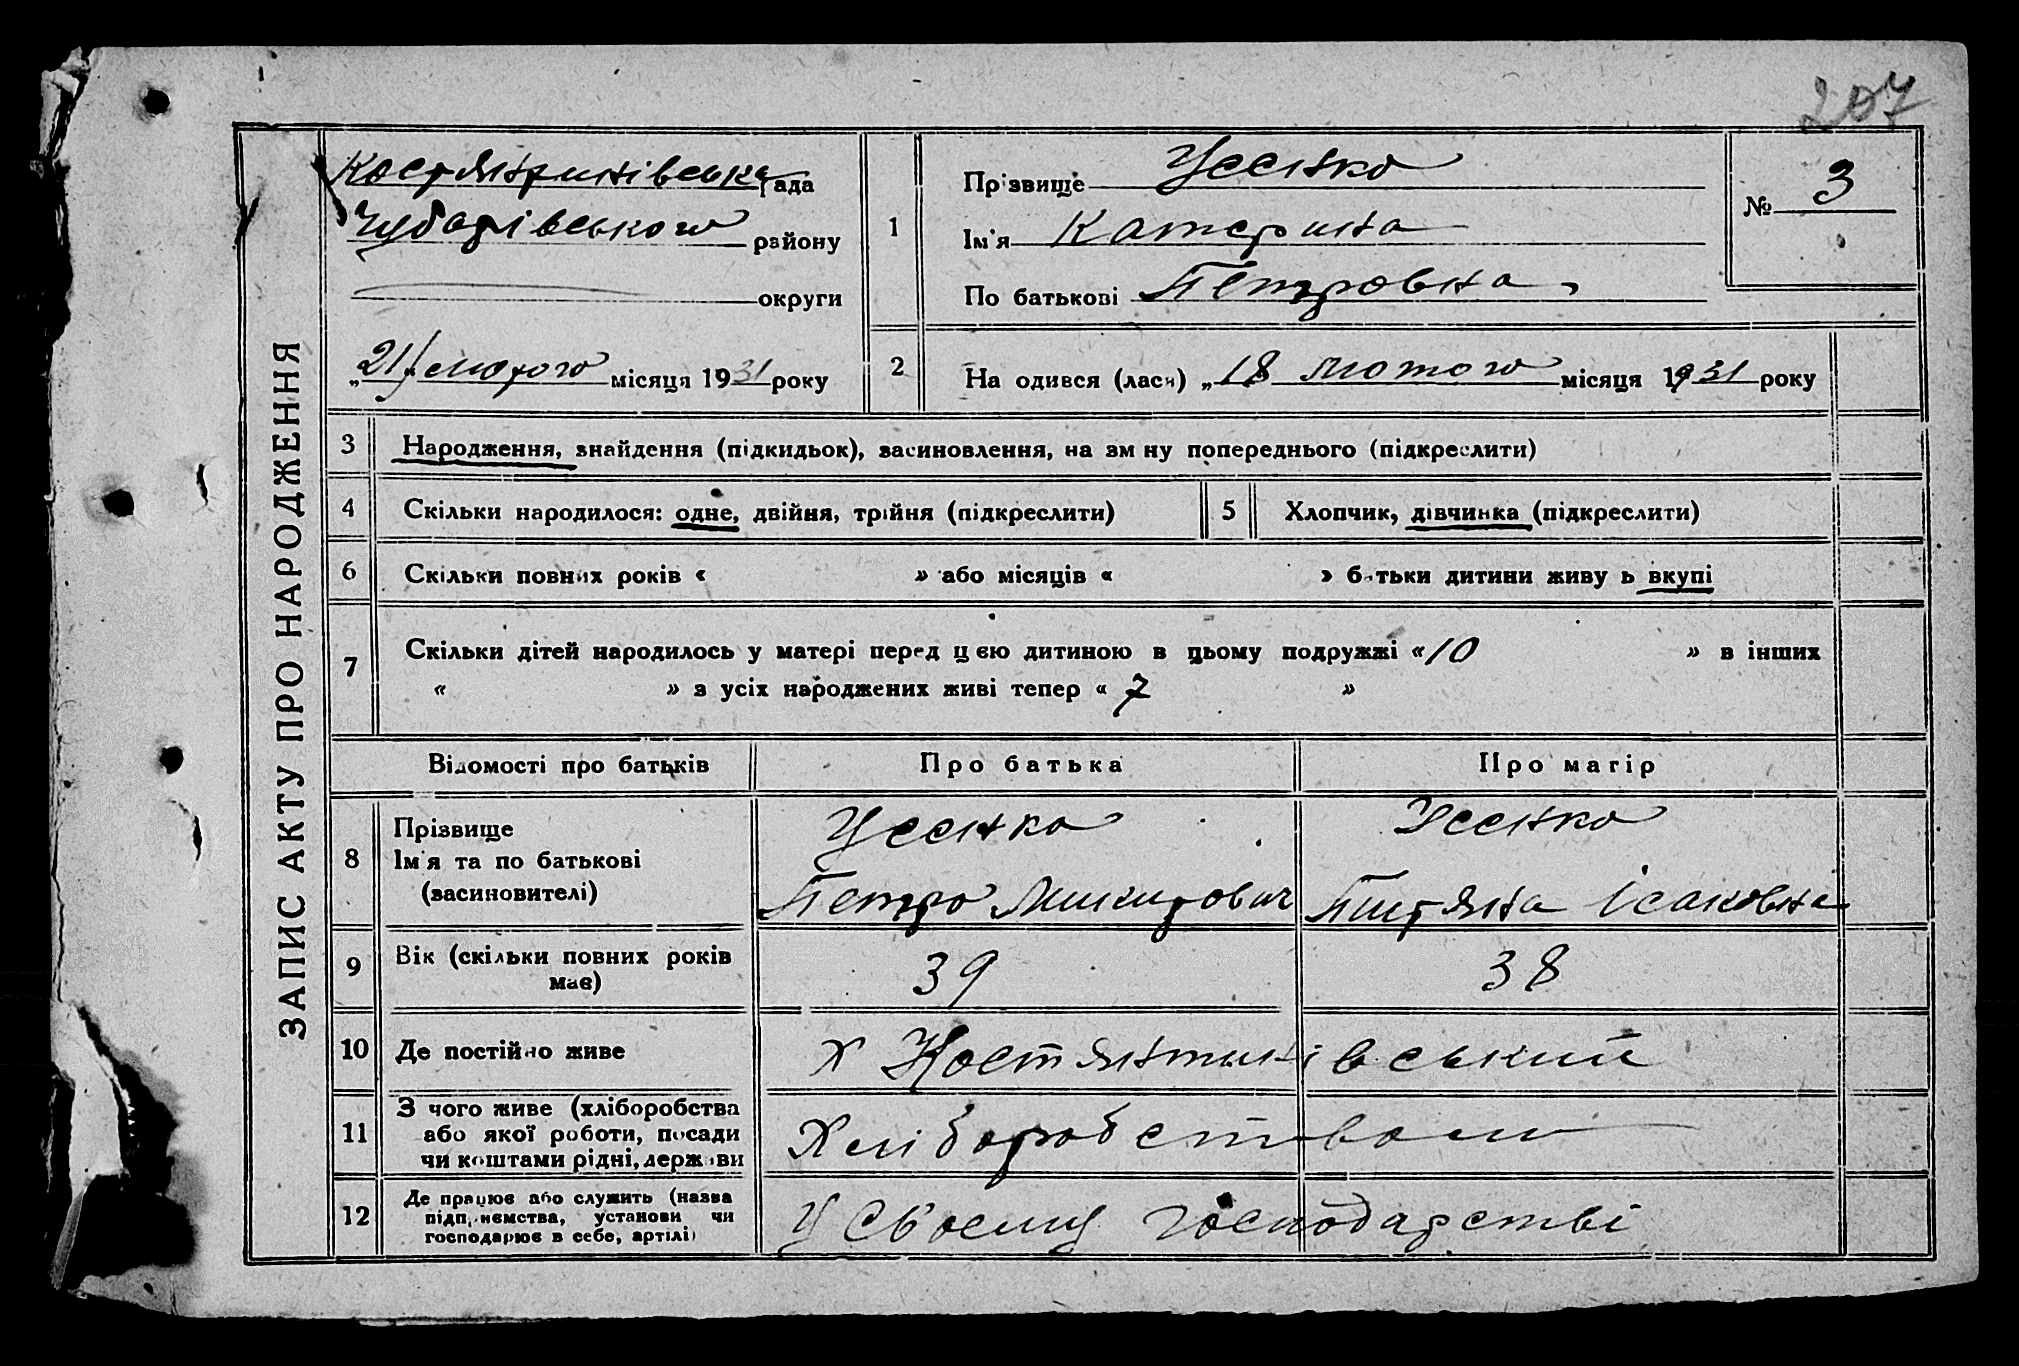 207
ЗАПИС АКТУ ПРО НАРОДЖЕННЯ
Костянтинівська рада
Чубарівського району
округи
„21 лютого місяця 1931 року
1
Прізвище Усенко
Ім'я Катерина
По батькові Петровна
№ 3
2
На одився (лася) „18 лютого місяця 1931 року
3 Народження, знайдення (підкидьок), засиновлення, на зм ну попереднього (підкреслити)
4 Скільки народилося: одне, двійня, трійня (підкреслити) 5 Хлопчик, дівчинка (підкреслити)
6 Скільки повних років « » або місяців « » батьки дитини живу ь вкупі
7 Скільки дітей народилось у матері перед цією дитиною в цьому подружжі «10 » в інших
« » з усіх народжених живі тепер « 7 »
Відомості про батьків Про батька Про матір
8 Прізвище Усенко Усенко
Ім'я та по батькові
(засиновителі) Петро Никифорович Ісаковна
9 Вік (скільки повних років має) 39 38
10 Де постійно живе Х Костянтинівський
11 З чого живе (хліборобства
або якої роботи, посади
чи коштами рідні, держави Хліборобством
12 Де працює або служить (назва
підприємства, установи чи
господарює в себе, артілі) У своєму господарстві